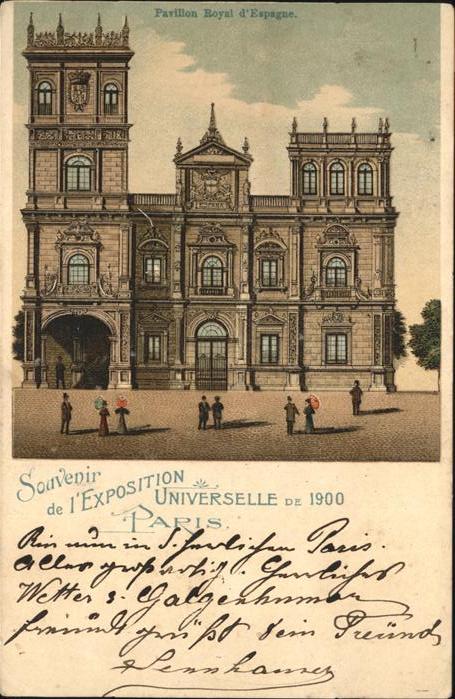 Pavillon Royal d'Espagne.
Souvenir
de l'EXPOSITION
UNIVERSELLE DE 1900
PARIS.
Bin nun in herrlichen Paris.
Alles großartig. Herrliches
Wetter & Galgenhumor
freundt grüßt dein Freund
Sennhauser